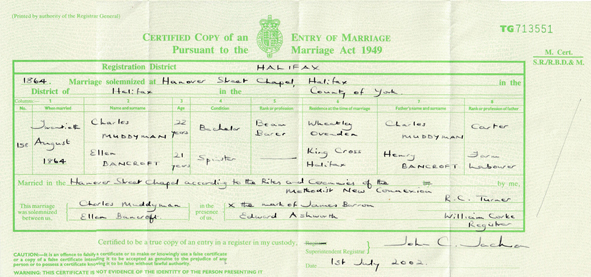 (Printed by authority of the Registrar General)
TG713551
CERTIFIED COPY of an ENTRY OF MARRIAGE
Pursuant to the Marriage Act 1949
M. Cert.
S.R./R.B.D.& M.
Registration District HALIFAX
1864. Marriage solemnized at Hanover Street Chapel, Halifax in the
District of Halifax in the County of York
Columns:— 1 2 3 4 5 6 7 8
No. When married Name and surname Age Condition Rank or profession Residence at the time of marriage Father's name and surname Rank or profession of father
Charles MUDDYMAN 22 years Bachelor Wheatley Ovenden Charles MUDDYMAN Carter
August 1864
Ellen BANCROFT 21 years Spinster King Cross Halifax Henry BANCROFT Farm Labourer
Married in the Hanover Street Chapel according to the Rites and Ceremonies of the Methodist New Connexion by me,
This marriage was solemnized between us, Charles Muddyman Ellen Bancroft in the presence of us, X the mark of James Edward Ashworth R.C. Turner William Registrar
Certified to be a true copy of an entry in a register in my custody, Superintendent Registrar John C. Jackson
Date 1st July 2002.
CAUTION:—It is an offence to falsify a certificate or to make or knowingly use a false certificate
or a copy of a false certificate intending it to be accepted as genuine to the prejudice of any
person or to possess a certificate knowing it to be false without lawful authority.
WARNING: THIS CERTIFICATE IS NOT EVIDENCE OF THE IDENTITY OF THE PERSON PRESENTING IT